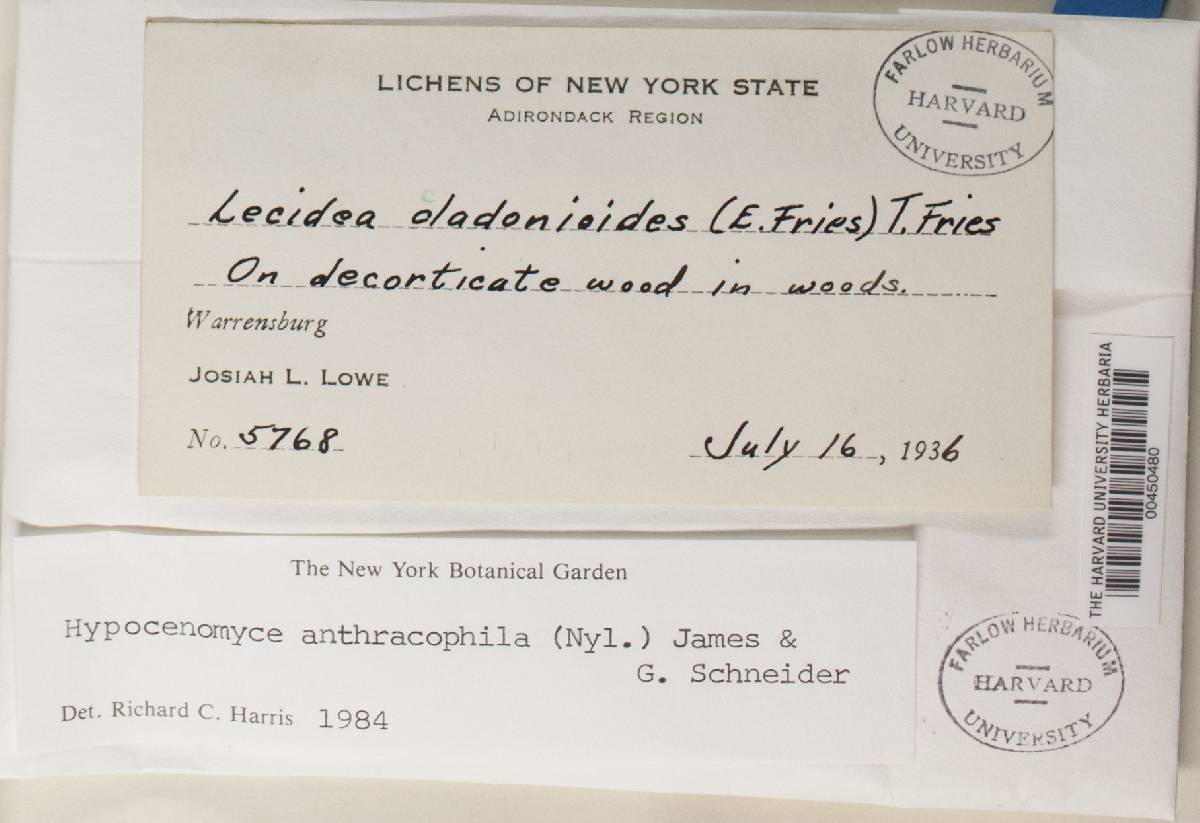 LICHENS OF NEW YORK STATE
ADIRONDACK REGION
FARLOW HERBARIUM
HARVARD
UNIVERSITY
Lecidea cladonioides (E. Fries) T. Fries
On decorticate wood in woods.
Warrensburg
JOSIAH L. LOWE
No. 5768
July 16, 1936
THE HARVARD UNIVERSITY HERBARIA
00450480
The New York Botanical Garden
Hypocenomyce anthracophila (Nyl.) James &
G. Schneider
Det. Richard C. Harris 1984
FARLOW HERBARIUM
HARVARD
UNIVERSITY